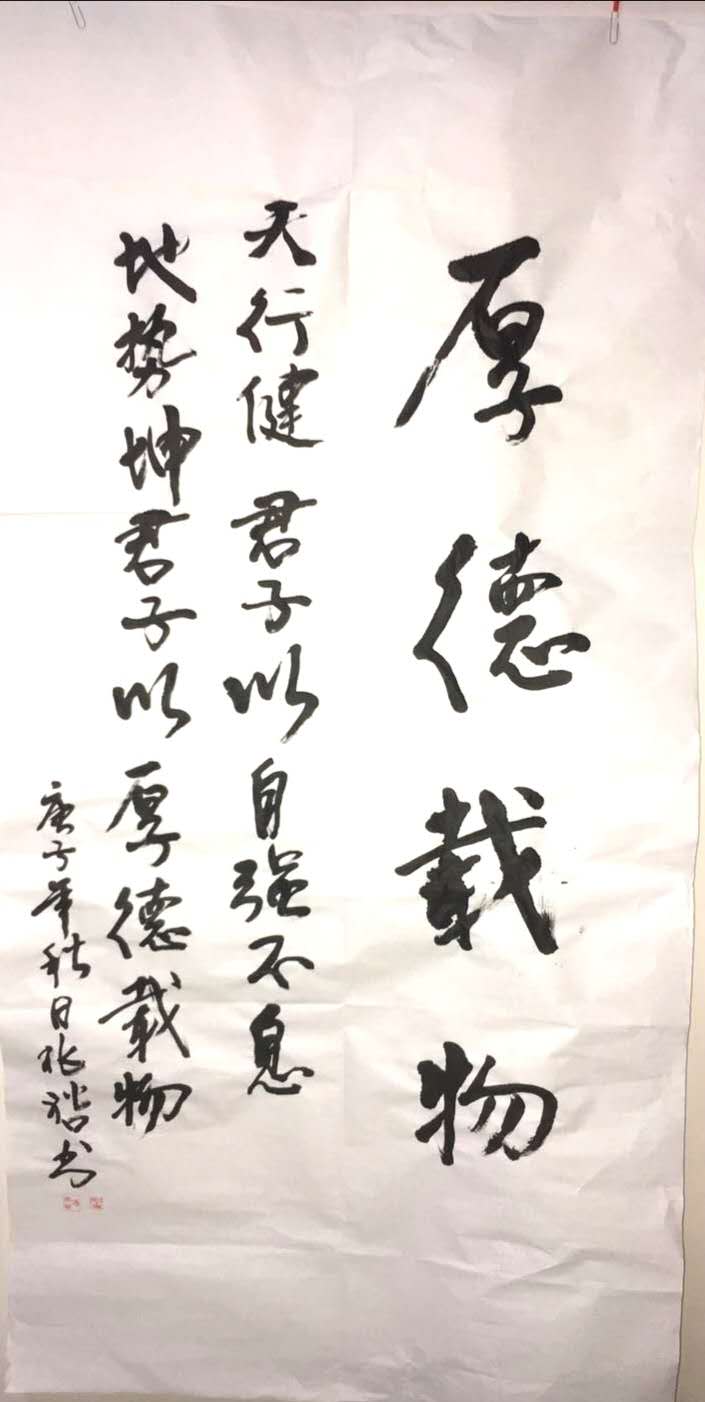 厚德载物
天行健君子以自强不息
地势坤君子以厚德载物
庚子年秋日张锴书